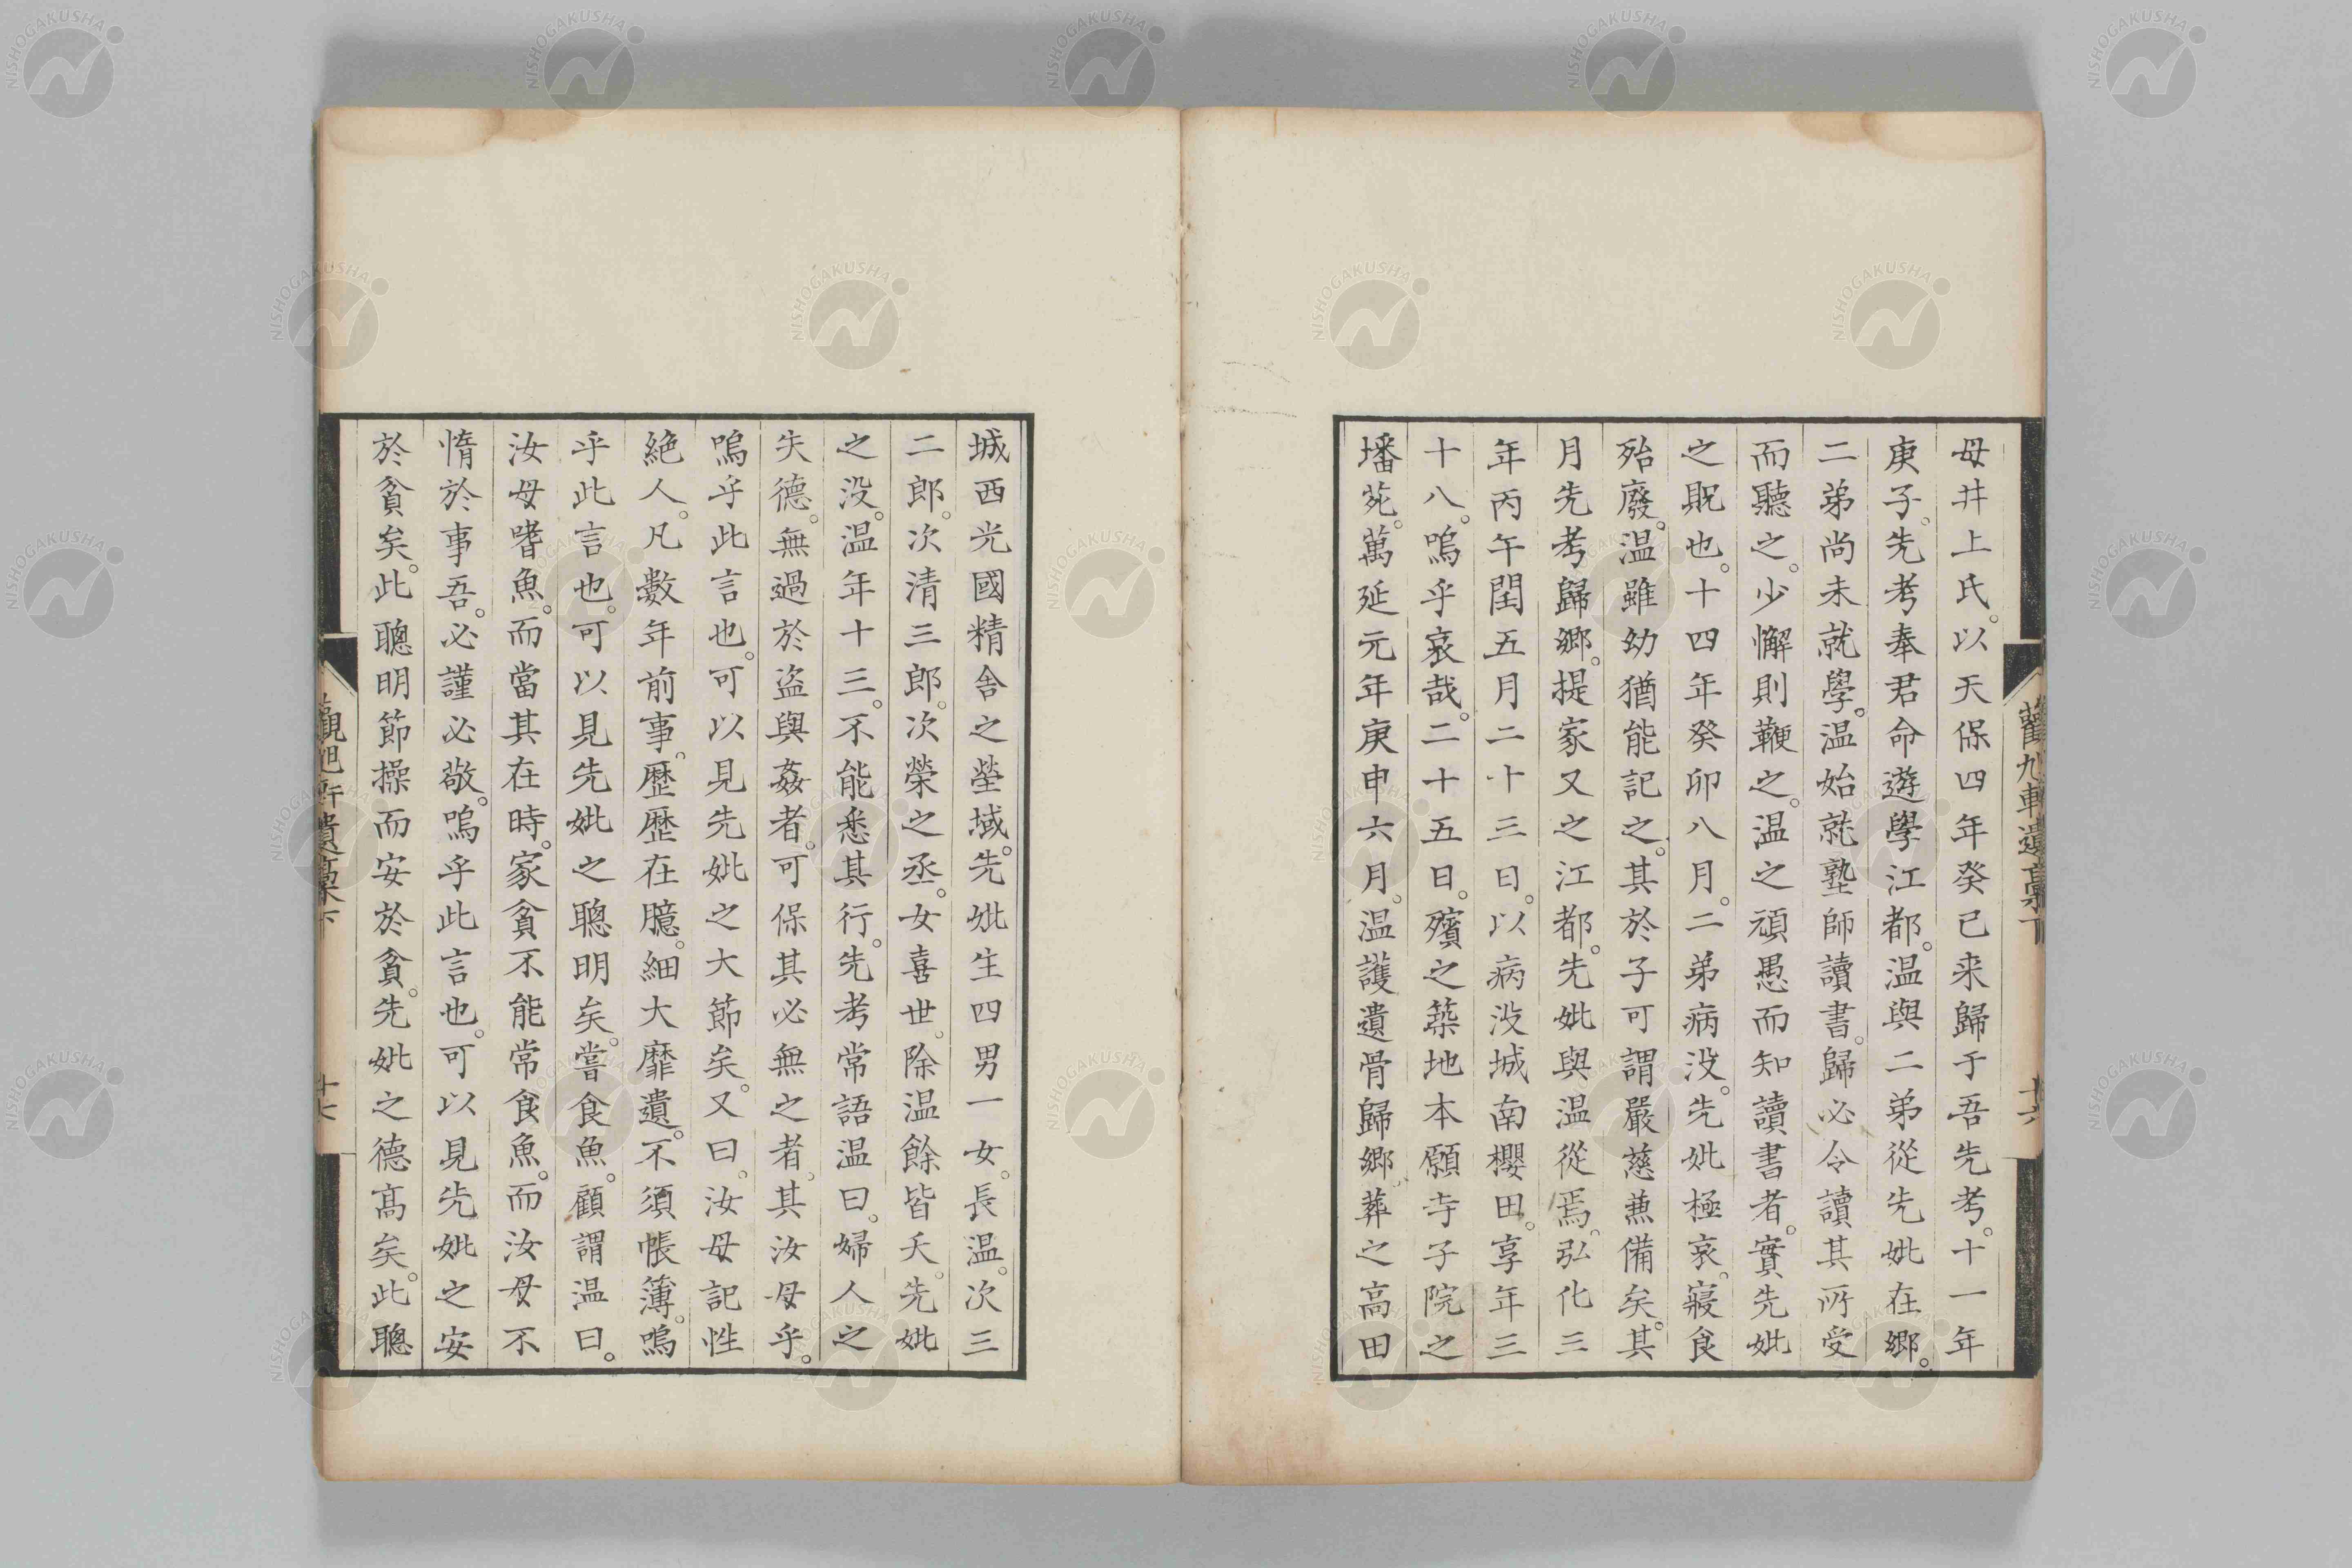 母井上氏。以天保四年癸巳来歸于吾先考。十一年
庚子。先考奉君命遊學江都。温與二弟從先妣在鄉。
二弟尚未就學。温始就塾師讀書。歸必令讀其所受
而聽之。少懈則鞭之。温之頑愚而知讀書者。實先妣
之貺也。十四年癸卯八月。二弟病没。先妣極哀。寢食
殆廢。温雖幼猶能記之。其於子可謂嚴慈兼備矣。其
月先考歸鄉。提家又之江都。先妣與温從焉。弘化三
年丙午閏五月二十三日。以病没城南櫻田。享年三
十八。嗚乎哀哉。二十五日。殯之築地本願寺子院之
墦茔。萬延元年庚申六月。温護遺骨歸鄉。葬之高田
觀旭軒遺稾下
十六
城西光國精舎之塋域。先妣生四男一女。長温。次三
二郎。次清三郎。次榮之丞。女喜世。除温餘皆夭。先妣
之没。温年十三。不能悉其行。先考常語温曰。婦人之
失德。無過於盗與姦者。可保其必無之者。其汝母乎。
嗚乎此言也。可以見先妣之大節矣。又曰。汝母記性
絶人。凡數年前事。歴歴在臆。細大靡遺。不須帳簿。嗚
乎此言也。可以見先妣之聰明矣。嘗食魚。顧謂温曰。
汝母嗜魚。而當其在時。家貧不能常食魚。而汝母不
惰於事吾。必謹必敬。嗚乎此言也。可以見先妣之安
於貧矣。此聰明節操而安於貧。先妣之德髙矣。此聰
觀旭軒遺稾下
十七
NISHOGAKUSHA